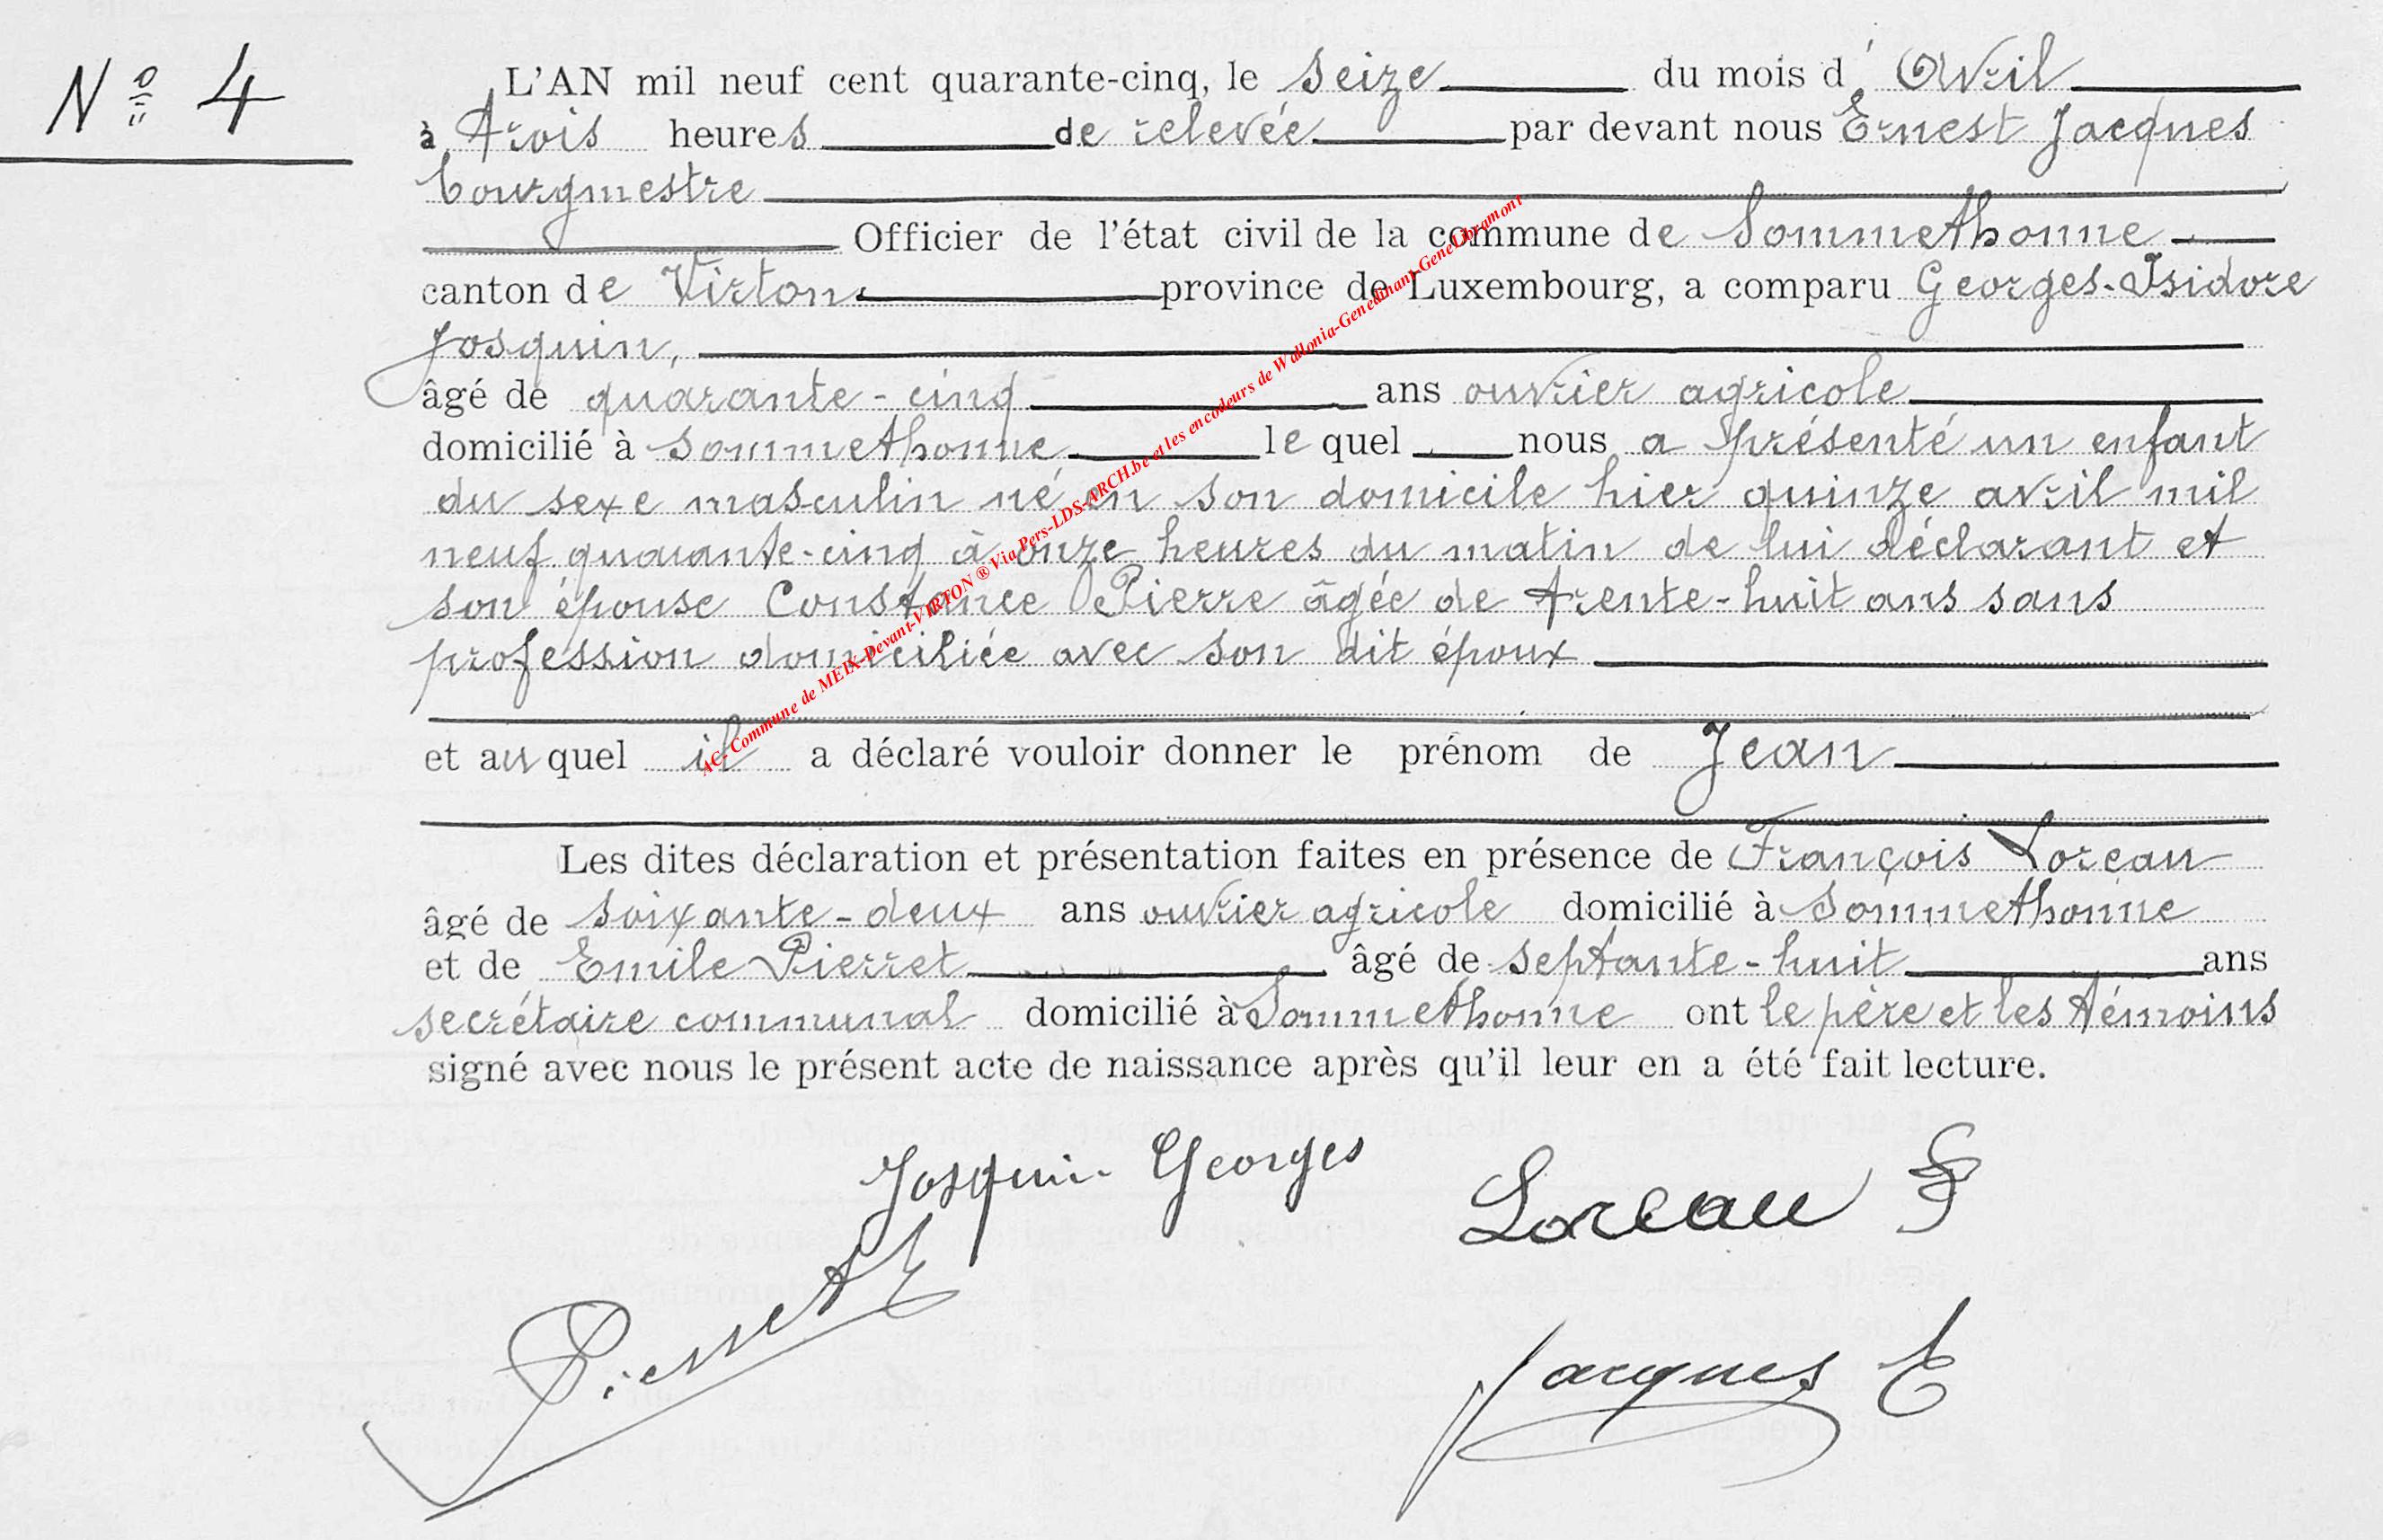 N° 4
L'AN mil neuf cent quarante-cinq, le seize du mois d'Avril
à trois heures de relevée par devant nous Ernest Jacques
bourgmestre
Officier de l'état civil de la commune de Sommethonne
canton de Virton province de Luxembourg, a comparu Georges-Isidore
Josquin,
âgé de quarante-cinq ans ouvrier agricole
domicilié à Sommethonne, lequel nous a présenté un enfant
du sexe masculin né en son domicile hier quinze avril mil
neuf quarante-cinq à onze heures du matin de lui déclarant et
son épouse Constance Pierre âgée de trente-huit ans sans
profession domiciliée avec son dit époux
et auquel il a déclaré vouloir donner le prénom de Jean
Les dites déclaration et présentation faites en présence de François Loreau
âgé de soixante-deux ans ouvrier agricole domicilié à Sommethonne
et de Emile Pierret âgé de septante-huit ans
secrétaire communal domicilié à Sommethonne ont le père et les témoins
signé avec nous le présent acte de naissance après qu'il leur en a été fait lecture.
Josquin Georges
Loreau F
Pierret E
Jacques E
AC- Commune de MEIX-Devant-VIRTON ® Via Pers-LDS-ARCH.be et les encodeurs de Wallonia-Genedinant-GeneLibramont